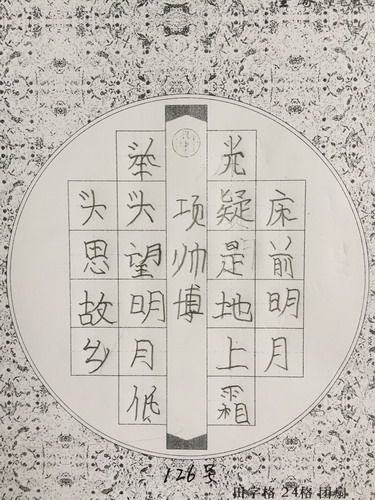 床前明月
光疑是地上霜
举头望明月低
头思故乡
项帅博
126号
田字格 24格 团扇